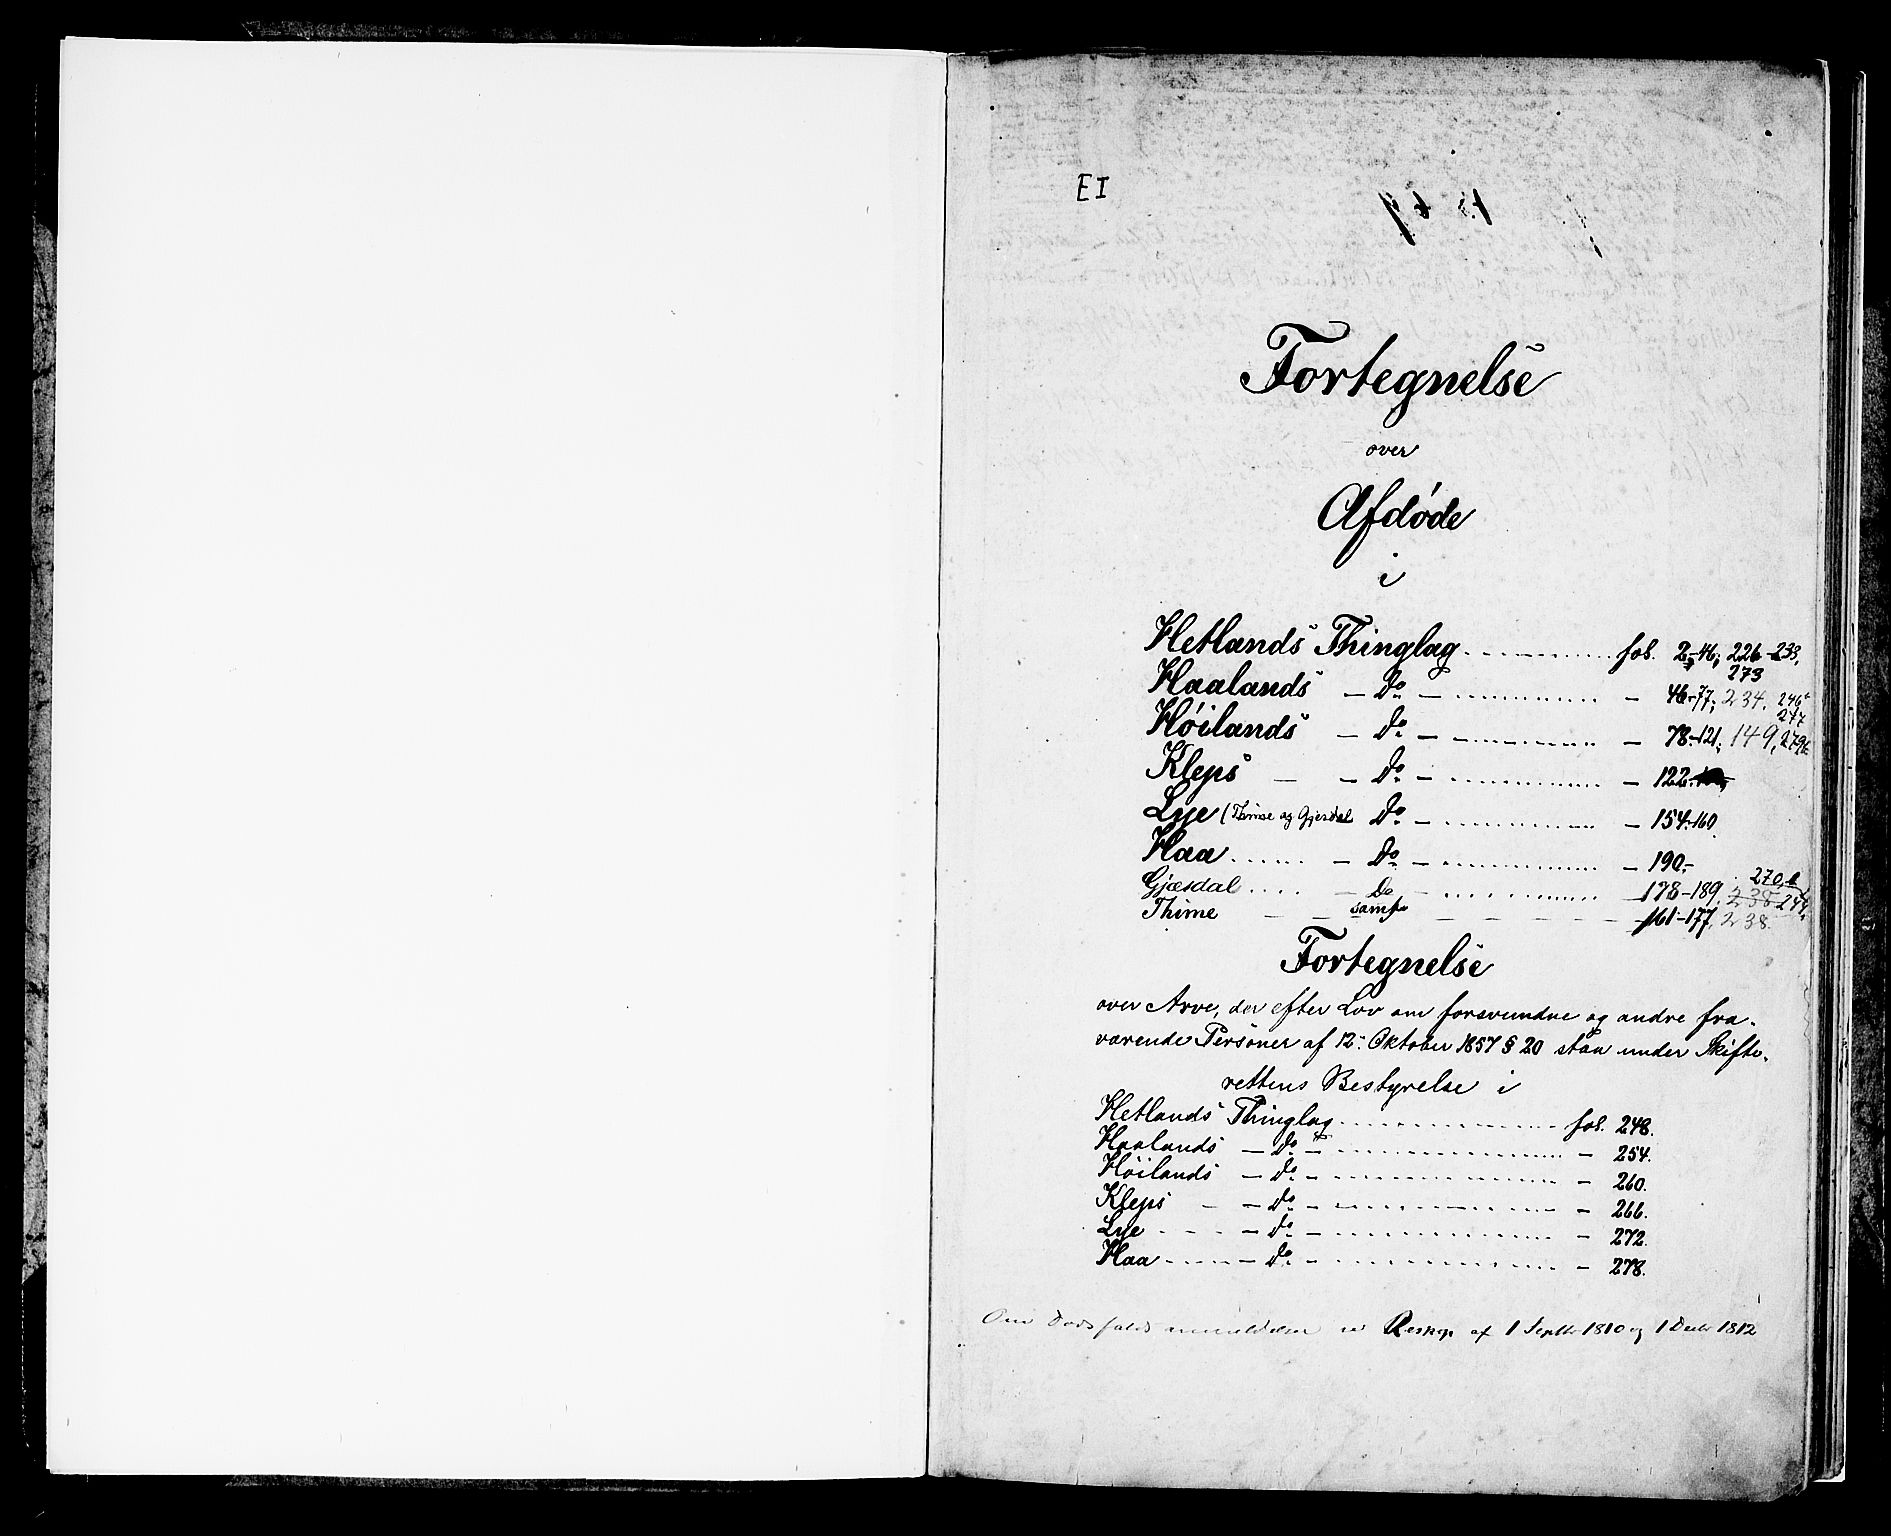 EI
Fortegnelse
over
Afdøde
i
Hetlands Thinglag ............ fol. 2-46; 226-233,
273
Haalands — Do — ............ — 46-77; 234, 246
247
Høilands — Do — ............ — 78-121; 149, 279
Kleps — — Do — ............ — 122-
Lye (Thime og Gjesdal Do — ............ — 154-160
Haa ...... — Do — ............ — 190-
270,
Gjæsdal .... — Do — ............ — 178-189, 238 244,
Thime — — samf — — — — — 161-177, 238.
Fortegnelse
over Arve, der efter Lov om forsvundne og andre fra-
værende Personer af 12. Oktober 1857 § 20 staa under Skifte-
rettens Bestyrelse i
Hetlands Thinglag ............ fol. 248.
Haalands — Do — ............ — 254.
Høilands — Do — ............ — 260.
Kleps — — Do — ............ — 266.
Lye .... — Do — ............ — 272.
Haa ...... — Do — ............ — 278.
Om Dødsfalds anmeldelser se Reskr. af 1 Septbr 1810 og 1 Decbr 1812